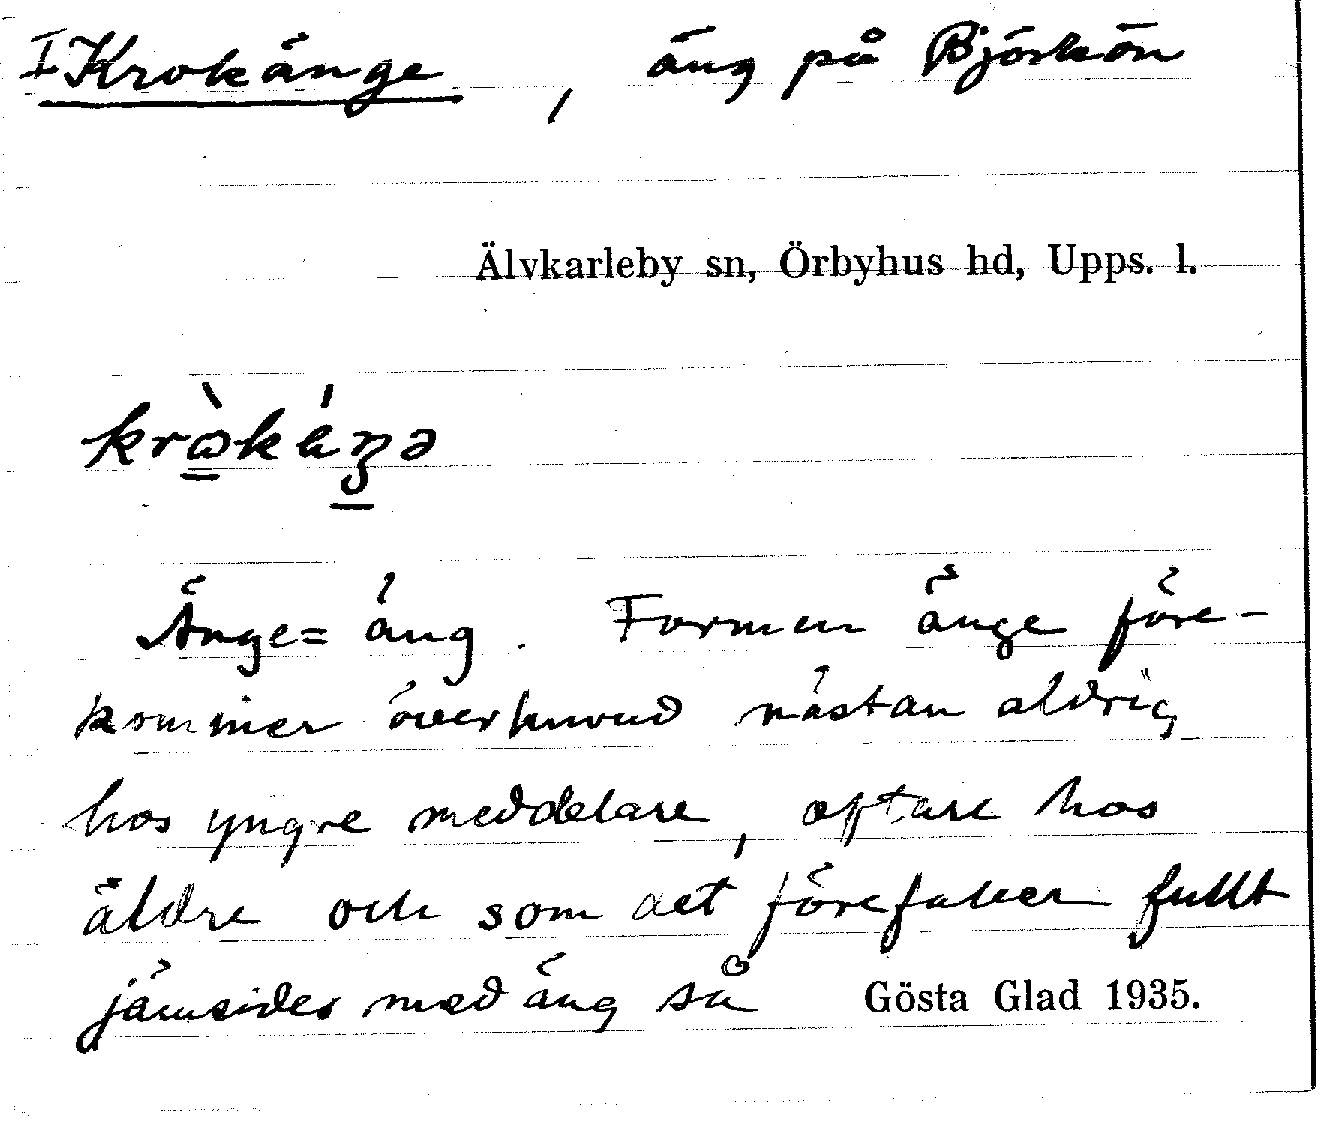 I Krokänge, äng på Björkön
Älvkarleby sn, Örbyhus hd, Upps. l.
Änge = äng. Formen änge före-
kommer överhuvud nästan aldrig
hos yngre meddelare, oftare hos
äldre och som det förefaller fullt
jämsides med äng så Gösta Glad 1935.